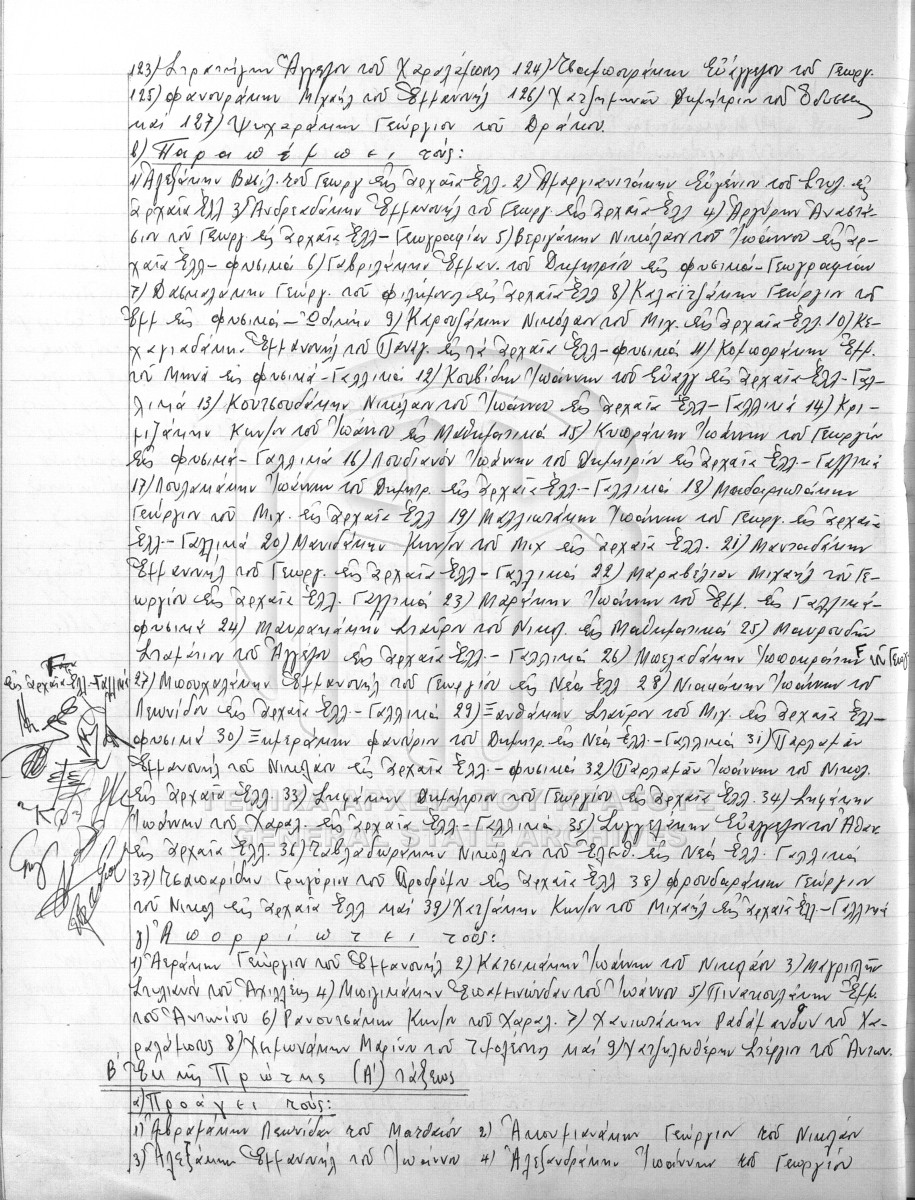 123) Στρατήγην Ἄγγελον τοῦ Χαραλάμπους 124) Τσαμπουράκην Εὐάγγελον τοῦ Γεωργ.
125) Φανουράκην Μιχαήλ τοῦ Ἐμμανουήλ 126) Χατζημηνᾶν Δημήτριον τοῦ Ὀδυσσ.
καί 127) Ψυχαράκην Γεώργιον τοῦ Δράκου.
β) Παραπέμπει τούς:
1) Ἀλεξάκην Βασίλ. τοῦ Γεωργ. εἰς ἀρχαῖα Ἑλλ. 2) Ἀμαργιανιτάκην Εὐγένιον τοῦ Στυλ. εἰς
ἀρχαῖα Ἑλλ 3) Ἀνδρεαδάκην Ἐμμανουήλ τοῦ Γεωργ. εἰς ἀρχαῖα Ἑλλ 4) Ἀργύρην Ἀναστά-
σιον τοῦ Γεωργ. εἰς ἀρχαῖα Ἑλλ - Γεωγραφίαν 5) Βεριγάκην Νικόλαον τοῦ Ἰωάννου εἰς ἀρ-
χαῖα Ἑλλ - φυσικά 6) Γαβριλάκην Ἐμμαν. τοῦ Δημητρίου εἰς φυσικά - Γεωγραφίαν
7) Δασκαλάκην Γεώργ. τοῦ Φιλήμονος εἰς ἀρχαῖα Ἑλλ 8) Καλαϊτζάκην Γεώργιον τοῦ
Ἐμμ εἰς φυσικά - Ὠδικήν 9) Καρουζάκην Νικόλαον τοῦ Μιχ. εἰς ἀρχαῖα Ἑλλ. 10) Κε-
χαγιαδάκην Ἐμμανουήλ τοῦ Παναγ. εἰς τά ἀρχαῖα Ἑλλ - φυσικά 11) Κομποράκην Ἐμμ.
τοῦ Μηνᾶ εἰς φυσικά - Γαλλικά 12) Κουβίδην Ἰωάννην τοῦ Εὐαγγ εἰς ἀρχαῖα Ἑλλ - Γαλ-
λικά 13) Κουτσουδάκην Νικόλαον τοῦ Ἰωάννου εἰς ἀρχαῖα Ἑλλ - Γαλλικά 14) Κρι-
μιζάκην Κων/ον τοῦ Ἰωάννου εἰς Μαθηματικά 15) Κυπράκην Ἰωάννην τοῦ Γεωργίου
εἰς φυσικά - Γαλλικά 16) Λουδιανόν Ἰωάννην τοῦ Δημητρίου εἰς ἀρχαῖα Ἑλλ. - Γαλλικά
17) Λουλακάκην Ἰωάννην τοῦ Δημητρ. εἰς ἀρχαῖα Ἑλλ. - Γαλλικά 18) Μαδαριωτάκην
Γεώργιον τοῦ Μιχ. εἰς ἀρχαῖα Ἑλλ 19) Μαλλιωτάκην Ἰωάννην τοῦ Γεωργ. εἰς ἀρχαῖα
Ἑλλ. - Γαλλικά 20) Μανιδάκην Κων/ον τοῦ Μιχ εἰς ἀρχαῖα Ἑλλ. 21) Μανταδάκην
Ἐμμανουήλ τοῦ Γεωργ. εἰς ἀρχαῖα Ἑλλ - Γαλλικά 22) Μαραβέλιαν Μιχαήλ τοῦ Γε-
ωργίου εἰς ἀρχαῖα Ἑλλ. Γαλλικά 23) Μαράκην Ἰωάννην τοῦ Ἐμμ. εἰς Γαλλικά -
φυσικά 24) Μαυρακάκην Σταῦρον τοῦ Νικολ. εἰς Μαθηματικά 25) Μαυρουδῆν
Σταμάτιον τοῦ Ἀγγέλου εἰς ἀρχαῖα Ἑλλ - Γαλλικά 26) Μπελαδάκην Ἱπποκράτην τοῦ Γεωργ.
εἰς ἀρχαῖα Ἑλλ - Γαλλικά
27) Μπουχαλάκην Ἐμμανουήλ τοῦ Γεωργίου εἰς Νέα Ἑλλ 28) Νιακάκην Ἰωάννην τοῦ
Λεωνίδου εἰς ἀρχαῖα Ἑλλ - Γαλλικά 29) Ξανθάκην Σταῦρον τοῦ Μιχ. εἰς ἀρχαῖα Ἑλλ -
φυσικά 30) Ξημεράκην Φανούριον τοῦ Δημητρ. εἰς Νέα Ἑλλ. - Γαλλικά 31) Παρλαμᾶν
Ἐμμανουήλ τοῦ Νικολάου εἰς ἀρχαῖα Ἑλλ. - φυσικά 32) Παρλαμᾶν Ἰωάννην τοῦ Νικολ.
εἰς ἀρχαῖα Ἑλλ 33) Σηφάκην Δημήτριον τοῦ Γεωργίου εἰς ἀρχαῖα Ἑλλ. 34) Σηφάκην
Ἰωάννην τοῦ Χαραλ. εἰς ἀρχαῖα Ἑλλ - Γαλλικά 35) Συγγελάκην Εὐάγγελον τοῦ Ἀθαν.
ΓΕΝΙΚΑ ΑΡΧΕΙΑ ΤΟΥ ΚΡΑΤΟΥΣ
GENERAL STATE ARCHIVES
εἰς ἀρχαῖα Ἑλλ. 36) Ταβλαδωράκην Νικόλαον τοῦ Ἐλευθ. εἰς Νέα Ἑλλ. Γαλλικά
37) Τσαπαρίδην Γρηγόριον τοῦ Προδρόμου εἰς ἀρχαῖα Ἑλλ 38) Φρουδαράκην Γεώργιον
τοῦ Νικολ εἰς ἀρχαῖα Ἑλλ καί 39) Χατζάκην Κων/ον τοῦ Μιχαήλ εἰς ἀρχαῖα Ἑλλ - Γαλλικά
γ) Ἀπορρίπτει τούς:
1) Ἀεράκην Γεώργιον τοῦ Ἐμμανουήλ 2) Κατσικάκην Ἰωάννην τοῦ Νικολάου 3) Μαγριπλῆν
Στυλιανόν τοῦ Ἀχιλλέως 4) Μπιγιμάκην Ἐπαμεινώνδαν τοῦ Ἰωάννου 5) Πινακουλάκην Ἐμμ.
τοῦ Ἀντωνίου 6) Ρανουτσάκην Κων/ον τοῦ Χαραλ. 7) Χανιωτάκην Ραδάμανθυν τοῦ Χα-
ραλάμπους 8) Χειμωνάκην Μαρῖνον τοῦ Τιμολέοντος καί 9) Χατζηλευθέρην Στέργιον τοῦ Ἀντων.
Β' Ἐκ τῆς Πρώτης (Α') τάξεως
α) Προάγει τούς:
1) Ἀβραμάκην Λεωνίδαν τοῦ Ματθαίου 2) Ἀκουμιανάκην Γεώργιον τοῦ Νικολάου
3) Ἀλεξάκην Ἐμμανουήλ τοῦ Ἰωάννου 4) Ἀλεξανδράκην Ἰωάννην τοῦ Γεωργίου